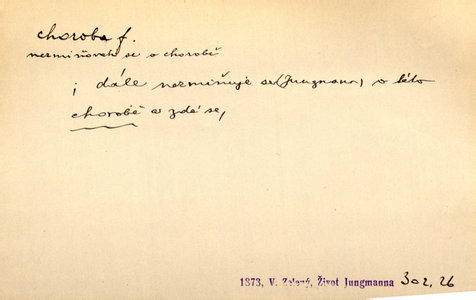 choroba f.
nezmiňovati se o chorobě
; dále nezmiňuje se (Jungmann) o této
chorobě a zdá se,
1873, V. Zelený, Život Jungmanna 302, 26